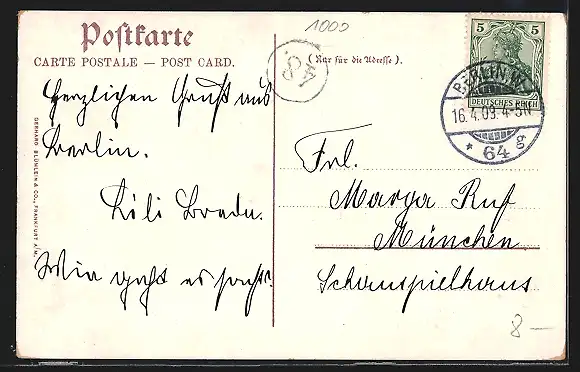 Postkarte
CARTE POSTALE — POST CARD.
1000
(Nur für die Adresse).
5 5
DEUTSCHES REICH
BERLIN W.
16.4.09. 4-5N
* 64 g
Herzlichen Gruß aus
Berlin.
Lili Brede.
Wie geht es sonst?
Frl.
Marga Ruf
München
Schauspielhaus
8 —
GERHARD BLÜMLEIN & CO., FRANKFURT A/M.